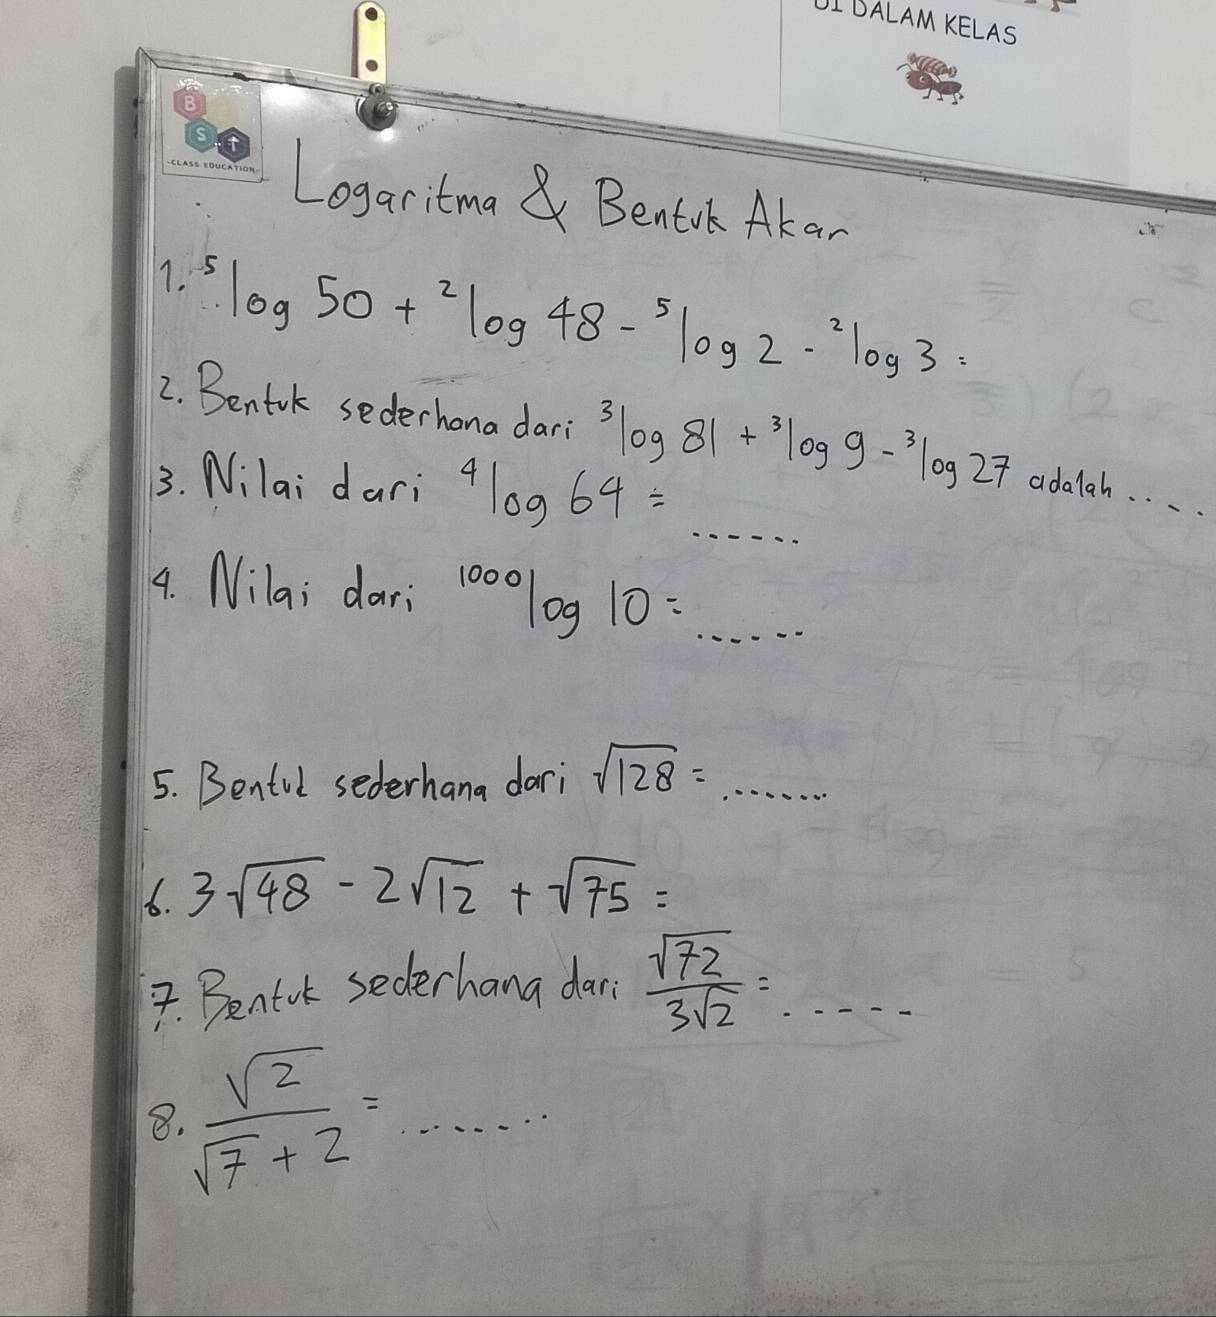 DI DALAM KELAS
B
S T
-CLASS EDUCATION-
Logaritma & Bentuk Akar
1. ⁵log 50 + ²log 48 - ⁵log 2 - ²log 3 =
2. Bentuk sederhana dari ³log 81 + ³log 9 - ³log 27 adalah ....
3. Nilai dari ⁴log 64 = ......
4. Nilai dari ¹⁰⁰⁰log 10 = ......
5. Bentuk sederhana dari √128 = .......
6. 3√48 - 2√12 + √75 =
7. Bentuk sederhana dari √72/3√2 = .....
8. √2/(√7 + 2) = .......